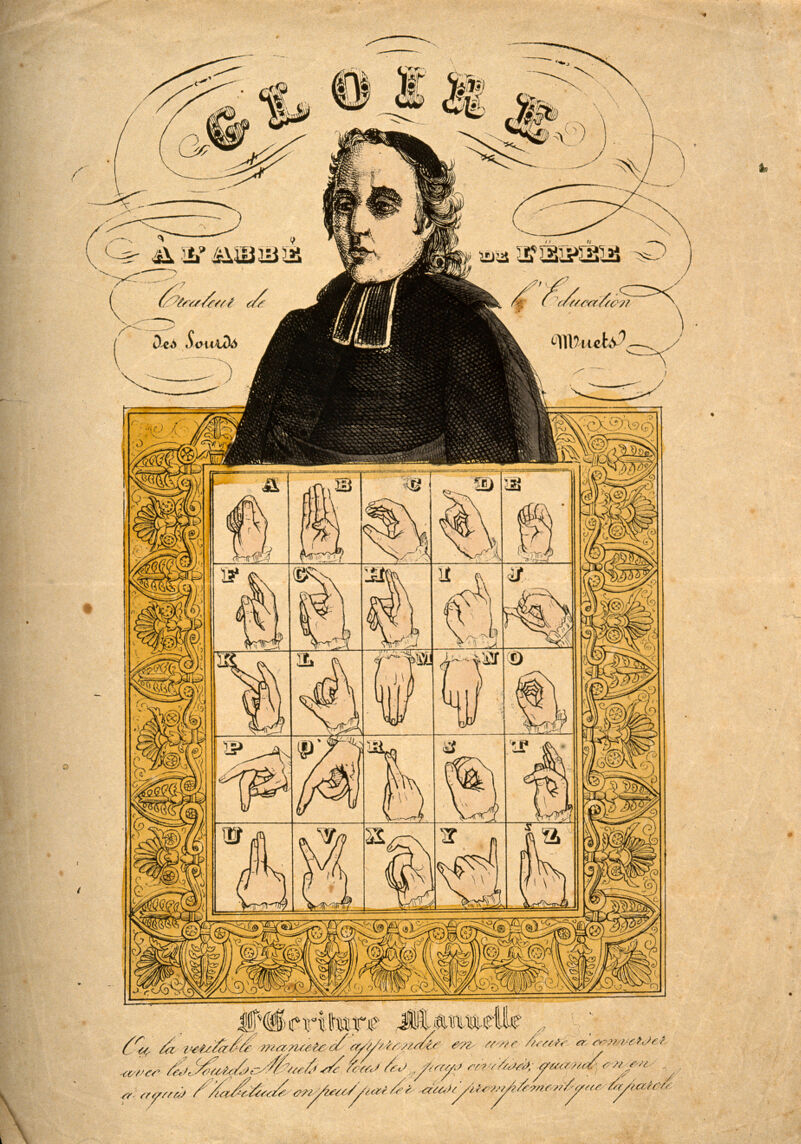 GLOIRE
À L'ABBÉ DE L'ÉPÉE
Createur de l'Education
Des Sourds Muets
A B C D E
F G H I J
K L M N O
P Q R S T
U V X Y Z
l'Ecriture Manuelle
Ou la veritable maniere d'apprendre en une heure a converser
avec les Sourds-Muets de tous les pays civilisés; quand on en
a aquis l'habitude on peut parler aussi promptement que la parole